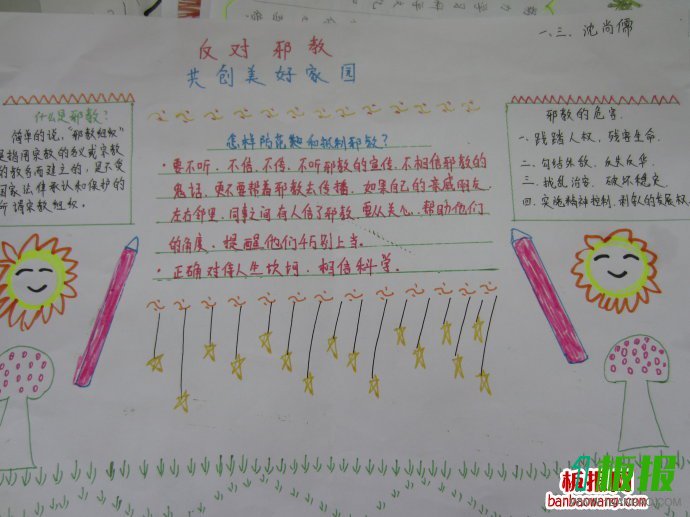 一、三、沈尚儒
反对邪教
共创美好家园
什么是邪教?
简单的说,"邪教组织"
是指用宗教的名义或宗教
的教名而建立的,是不受
国家法律承认和保护的
所谓宗教组织。
怎样防范和抵制邪教?
·要不听、不信、不传、不听邪教的宣传、不相信邪教的
鬼话,更不要帮着邪教去传播,如果自己的亲戚朋友,
左右邻里,同事之间有人信了邪教,要从关心、帮助他们
的角度,提醒他们别上当。
·正确对待人生坎坷,相信科学。
邪教的危害
一、践踏人权,残害生命.
二、勾结外敌,
三、扰乱治安、破坏稳定.
四、实施精神控制、剥夺的发展权
板报
板报
banbaowang.com